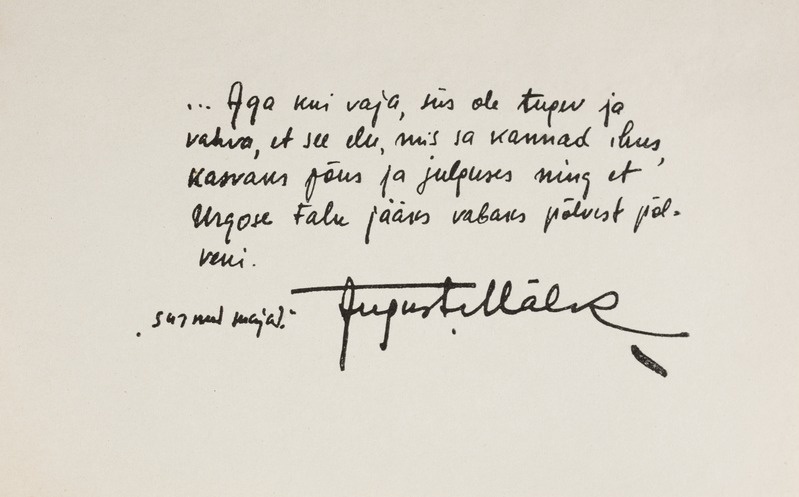 ... Aga kui vaja, siis ole tugev ja
vahva, et see elu, mis sa kannad ihus,
kasvaks jõus ja julguses ning et
Urgose Talu jääks vabaks põlvest põl-
veni.
„Surnud majad."
August Mälk